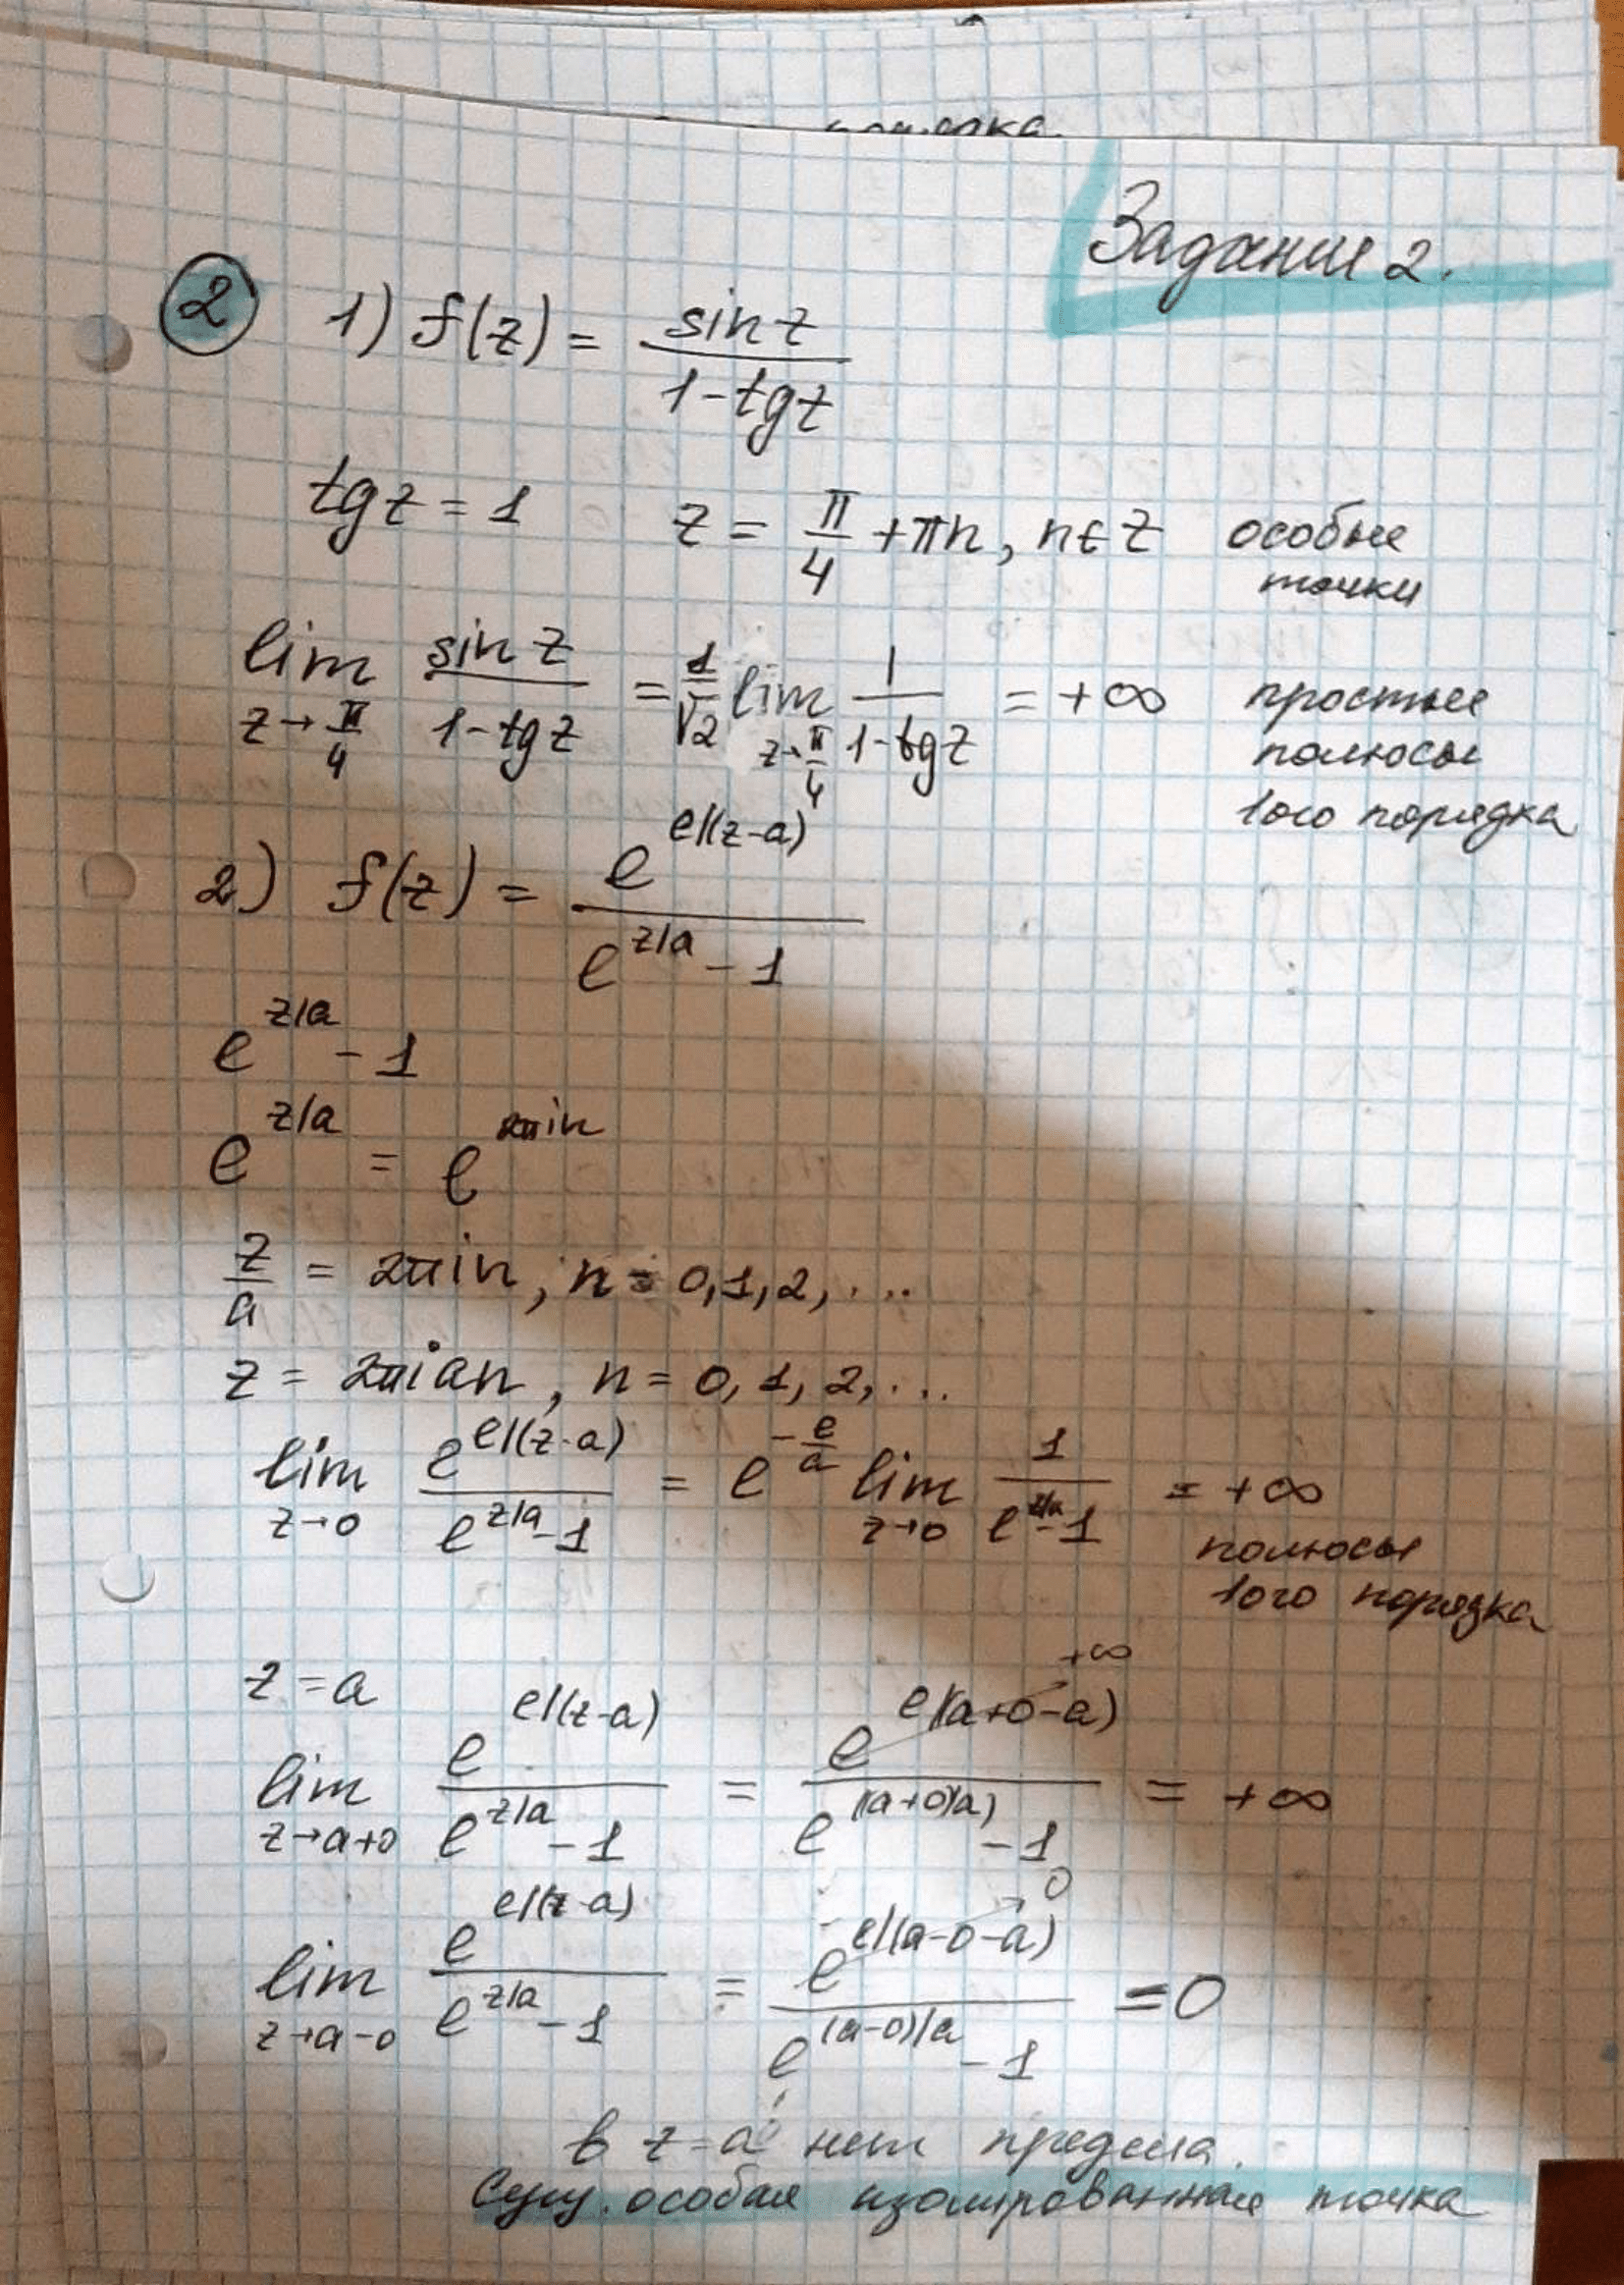 Задание 2.
2 1) f(z) = sin z / 1-tg z
tg z = 1 z = π/4 + πn, n∈Z особые
точки
lim z→π/4 sin z / 1-tg z = 1/√2 lim z→π/4 1 / 1-tg z = +∞ простые
полюсы
1ого порядка
2) f(z) = e^{e/(z-a)} / e^{z/a} - 1
e^{z/a} - 1
e^{z/a} = e^{2πin}
z/a = 2πin, n = 0,1,2,...
z = 2πian, n = 0,1,2,...
lim z→0 e^{e/(z-a)} / e^{z/a} - 1 = e^{-e/a} lim z→0 1 / e^{z/a} - 1 = +∞
полюсы
1ого порядка
z = a
lim z→a+0 e^{e/(z-a)} / e^{z/a} - 1 = e^{e/(a+0-a)} → +∞ / e^{(a+0)/a)} - 1 = +∞
lim z→a-0 e^{e/(z-a)} / e^{z/a} - 1 = e^{e/(a-0-a)} → 0 / e^{(a-0)/a} - 1 = 0
в z=a нет предела.
Сущ. особая изолированная точка